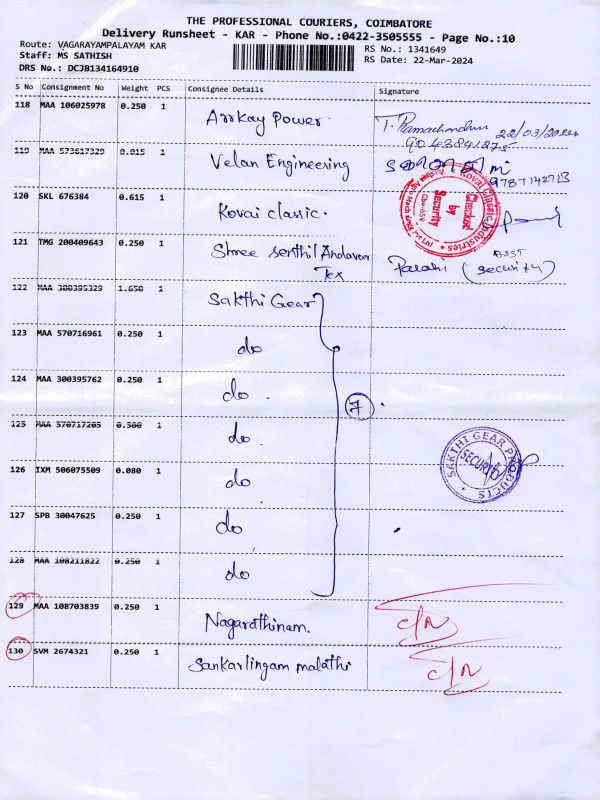 THE PROFESSIONAL COURIERS, COIMBATORE
Delivery Runsheet - KAR - Phone No.:0422-3505555 - Page No.:10
Route: VAGARAYAMPALAYAM KAR
Staff: MS SATHISH
DRS No.: DCJB134164910
RS No.: 1341649
RS Date: 22-Mar-2024
S No Consignment No Weight PCS Consignee Details Signature
118 MAA 106025978 0.250 1 Arrkay Power. T. Ramachandran 22/03/2024
119 MAA 573617329 0.015 1 Velan Engineering
9787142713
120 SKL 676384 0.615 1 Kovai classic.
Kovai Classic Industries
Checked by Security
121 TMG 200409643 0.250 1 Shree Senthil Andavar Tex
(security)
122 MAA 300395329 1.650 1 Sakthi Gear
123 MAA 570716961 0.250 1 do
124 MAA 300395762 0.250 1 do.
7
125 MAA 570717205 0.500 1 do.
SAKTHI GEAR PRODUCTS
SECURITY
126 IXM 506075509 0.080 1 do
127 SPB 30047625 0.250 1 do
128 MAA 108211822 0.250 1 do
129 MAA 108703839 0.250 1 Nagarathinam. C/R
130 SVM 2674321 0.250 1 Sankarlingam malathi C/R